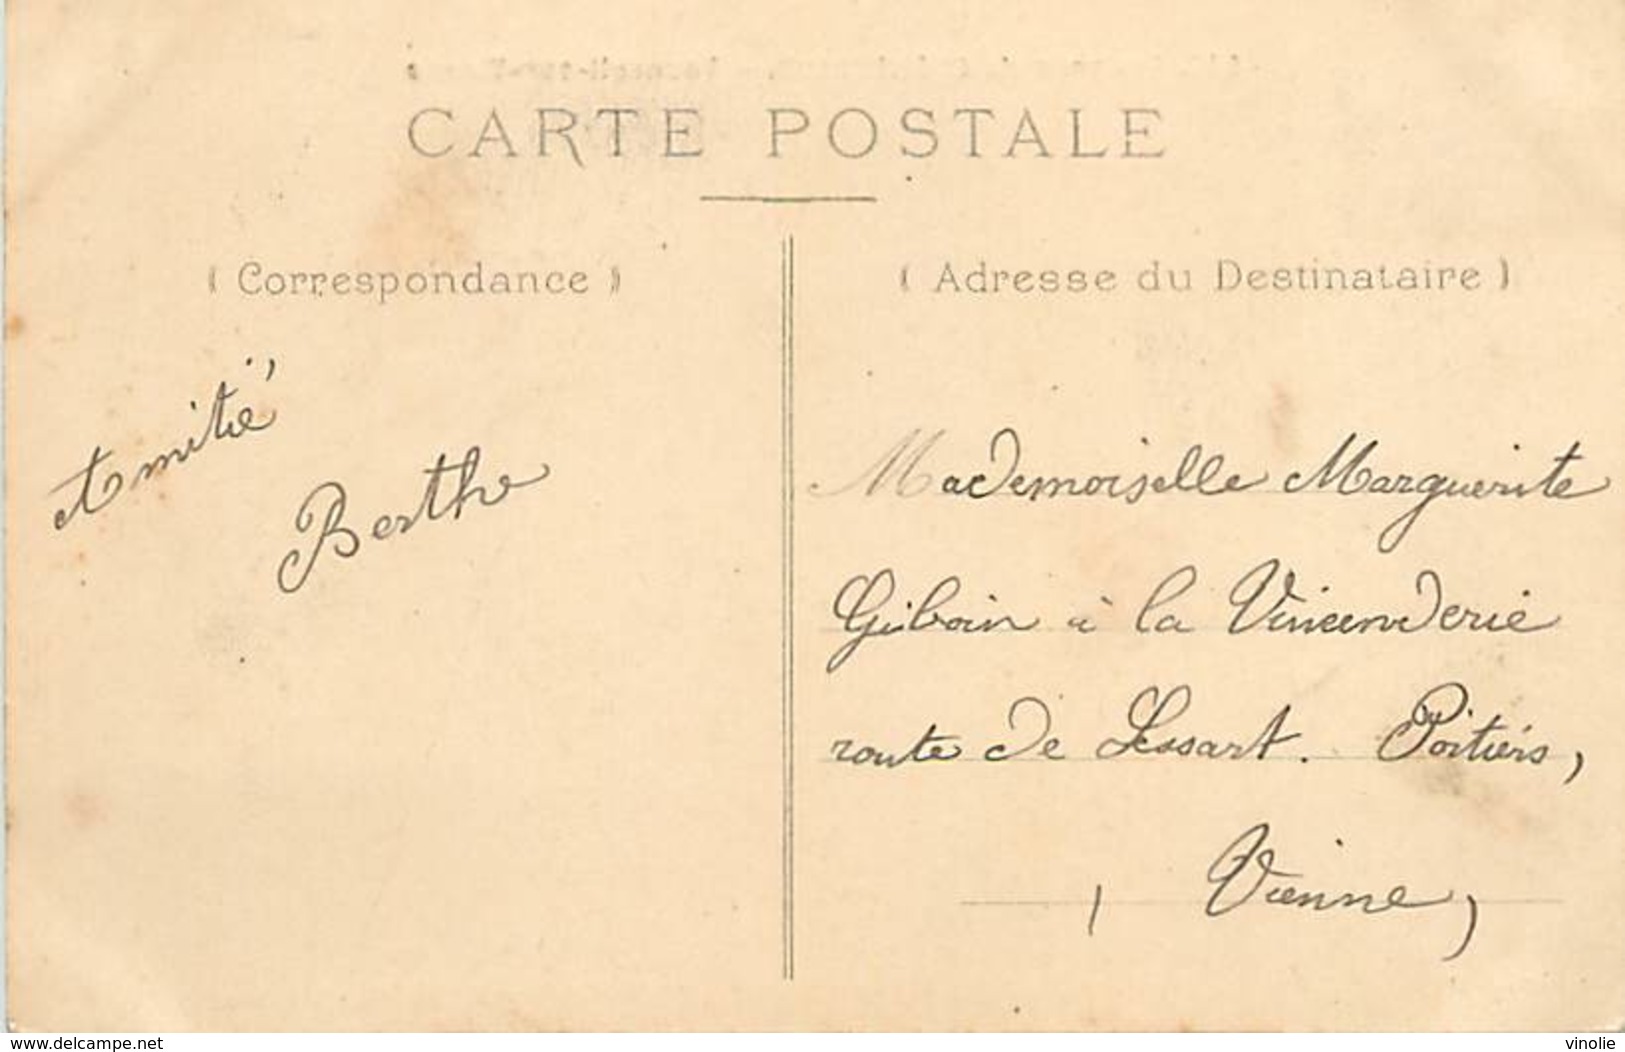 CARTE POSTALE
( Correspondance )
( Adresse du Destinataire )
Amitié
Berthe
Mademoiselle Marguerite
Giboin à la Vincenderie
route de Lessart. Poitiers,
Vienne,
www.delcampe.net
vinolie